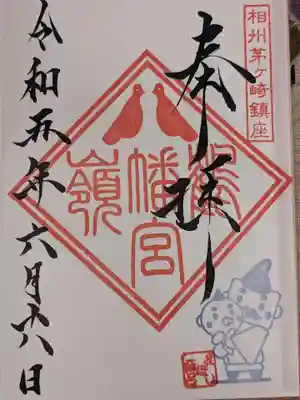 相州茅ヶ崎鎮座
奉拝
鶴嶺
八幡宮
令和五年六月十八日